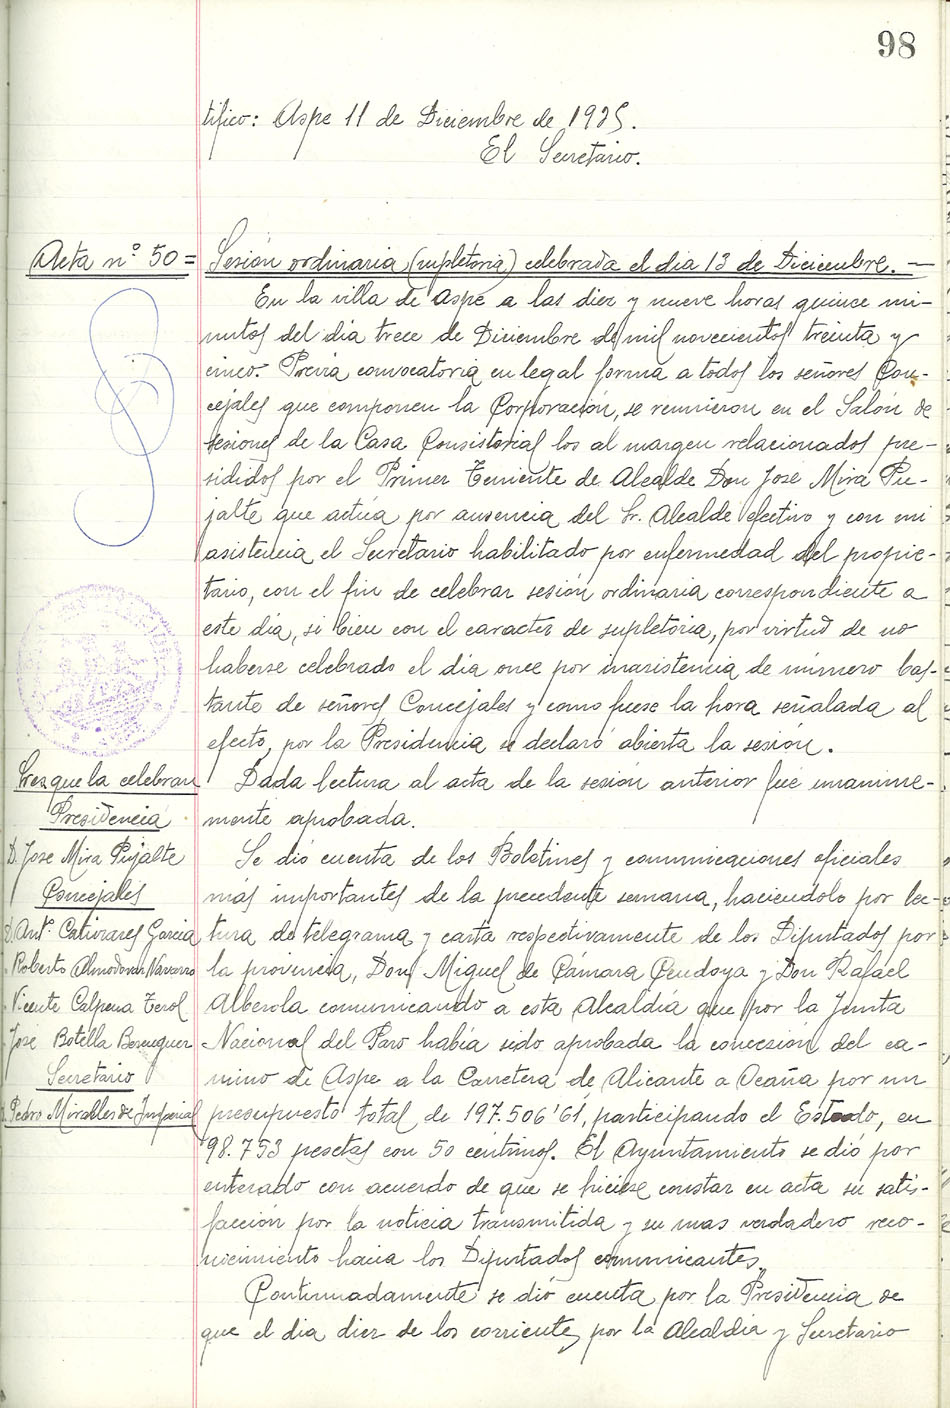 98
tifico: Aspe 11 de Diciembre de 1935.
El Secretario.
Acta nº 50=
Sesión ordinaria (supletoria) celebrada el dia 13 de Diciembre.—
En la villa de Aspe a las diez y nueve horas quince mi-
nutos del día trece de Diciembre de mil novecientos treinta y
cinco. Previa convocatoria en legal forma a todos los señores Con-
cejales que componen la Corporación, se reunieron en el Salón de
sesiones de la Casa Consistorial los al margen relacionados pre-
sididos por el Primer Teniente de Alcalde Don José Mira Pu-
jalte que actúa por ausencia del Sr. Alcalde efectivo y con mi
asistencia el Secretario habilitado por enfermedad del propie-
tario, con el fin de celebrar sesión ordinaria correspondiente a
este día, si bien con el caracter de supletoria, por virtud de no
haberse celebrado el día once por inasistencia de número bas-
tante de señores Concejales y como fuese la hora señalada al
efecto, por la Presidencia se declaró abierta la sesión.
Dada lectura al acta de la sesión anterior fué unanime-
mente aprobada.
Se dió cuenta de los Boletines y comunicaciones oficiales
más importantes de la precedente semana, haciendolo por lec-
tura de telegrama y carta respectivamente de los Diputados por
la provincia, Don Miguel de Cámara Cendoya y Don Rafael
Alberola comunicando a esta Alcaldía que por la Junta
Nacional del Paro había sido aprobada la concesión del ca-
mino de Aspe a la Carretera de Alicante a Ocaña por un
presupuesto total de 197.506'61, participando el Estado, en
98.753 pesetas con 50 centimos. El Ayuntamiento se dió por
enterado con acuerdo de que se hiciese constar en acta su satis-
facción por la noticia transmitida y su mas verdadero reco-
nocimiento hacia los Diputados comunicantes.
Continuadamente se dió cuenta por la Presidencia de
que el día diez de los corriente, por la Alcaldía y Secretario
Sres que la celebran
Presidencia
D. Jose Mira Pujalte
Concejales
D. Antº. Cañizares García
" Roberto Almodovar Navarro
" Vicente Calpena Terol
" Jose Botella Berenguer
Secretario
D. Pedro Miralles de Imperial